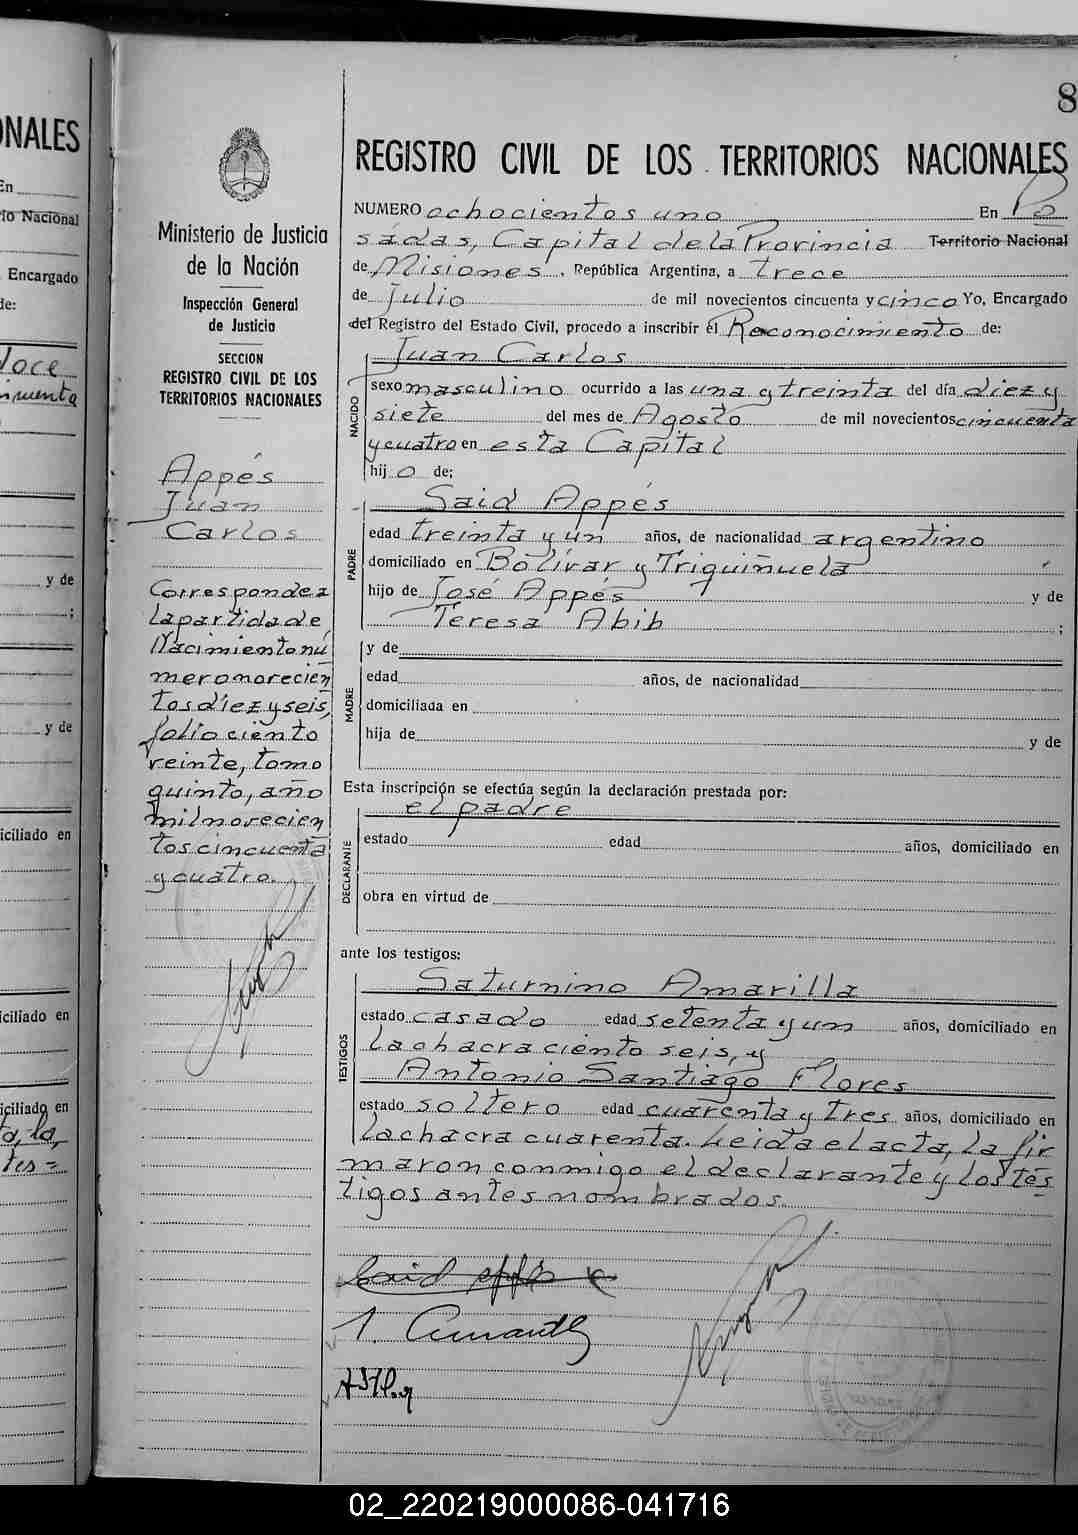 8
ONALES
En
io Nacional
Encargado
de:
doce
y de
;
y de
iciliado en
iciliado en
iciliado en
tes=
Ministerio de Justicia
de la Nación
Inspección General
de Justicia
SECCION
REGISTRO CIVIL DE LOS
TERRITORIOS NACIONALES
Appés
Juan
Carlos
Corresponde a
la partida de
Nacimiento nú
mero novecien
tos diez y seis,
folio ciento
veinte, tomo
quinto, año
mil novecien
tos cincuenta
y cuatro.
REGISTRO CIVIL DE LOS TERRITORIOS NACIONALES
NUMERO ochocientos uno En Po
sádas, Capital de la Provincia Territorio Nacional
de Misiones, República Argentina, a trece
de Julio de mil novecientos cincuenta y cinco Yo, Encargado
del Registro del Estado Civil, procedo a inscribir el Reconocimiento de:
Juan Carlos
NACIDO
sexo masculino ocurrido a las una y treinta del día diez y
siete del mes de Agosto de mil novecientos cincuenta
y cuatro en esta Capital
hijo de:
Said Appés
PADRE
edad treinta y un años, de nacionalidad argentino
domiciliado en Bolívar y Triquiñuela
hijo de José Appés y de
Teresa Abib ;
y de
MADRE
edad años, de nacionalidad
domiciliada en
hija de y de
Esta inscripción se efectúa según la declaración prestada por:
el padre
DECLARANTE
estado edad años, domiciliado en
obra en virtud de
ante los testigos:
Saturnino Amarilla
TESTIGOS
estado casado edad setenta y un años, domiciliado en
la chacra ciento seis, y
Antonio Santiago Flores
estado soltero edad cuarenta y tres años, domiciliado en
la chacra cuarenta. Leida el acta, la fir
maron conmigo el declarante y los tes
tigos antes nombrados.
02_220219000086-041716